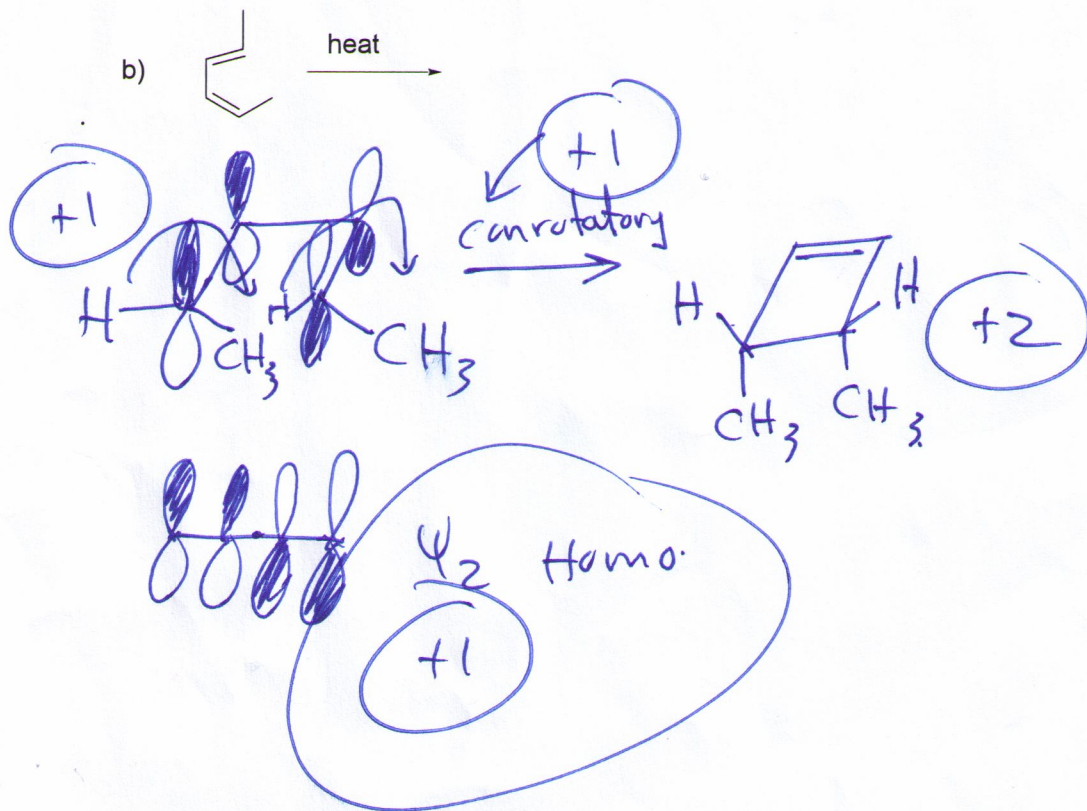 b)
heat
+1
+1
conrotatory
H
CH3
H
CH3
H
H
+2
CH3
CH3
Ψ2 Homo.
+1